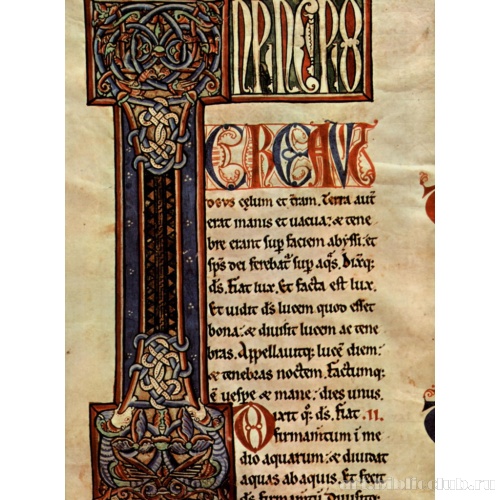 INPRINCIPIO
CREAVIT
DEUS cęlum et t̄ram. Terra aut̄
erat inanis et uacua: & tene
bre erant sup̄ faciem abyssi: et
sp̄s dei ferebat̄ sup̄ aq̄s. Dix̄q;
d̄s. Fiat lux. Et facta est lux.
Et uidit d̄s lucem quod esset
bona: & diuisit lucem ac tene
bras. Appellauitq; lucē diem:
& tenebras noctem. Factumq;
ē uespe & mane: dies unus.
Dixit q; d̄s. Fiat .11.
firmamentum i me
dio aquarum: & diuidat
aquas ab aquis. Et fecit
d̄s firmamentū. Diuisitq;
www.biblioclub.ru